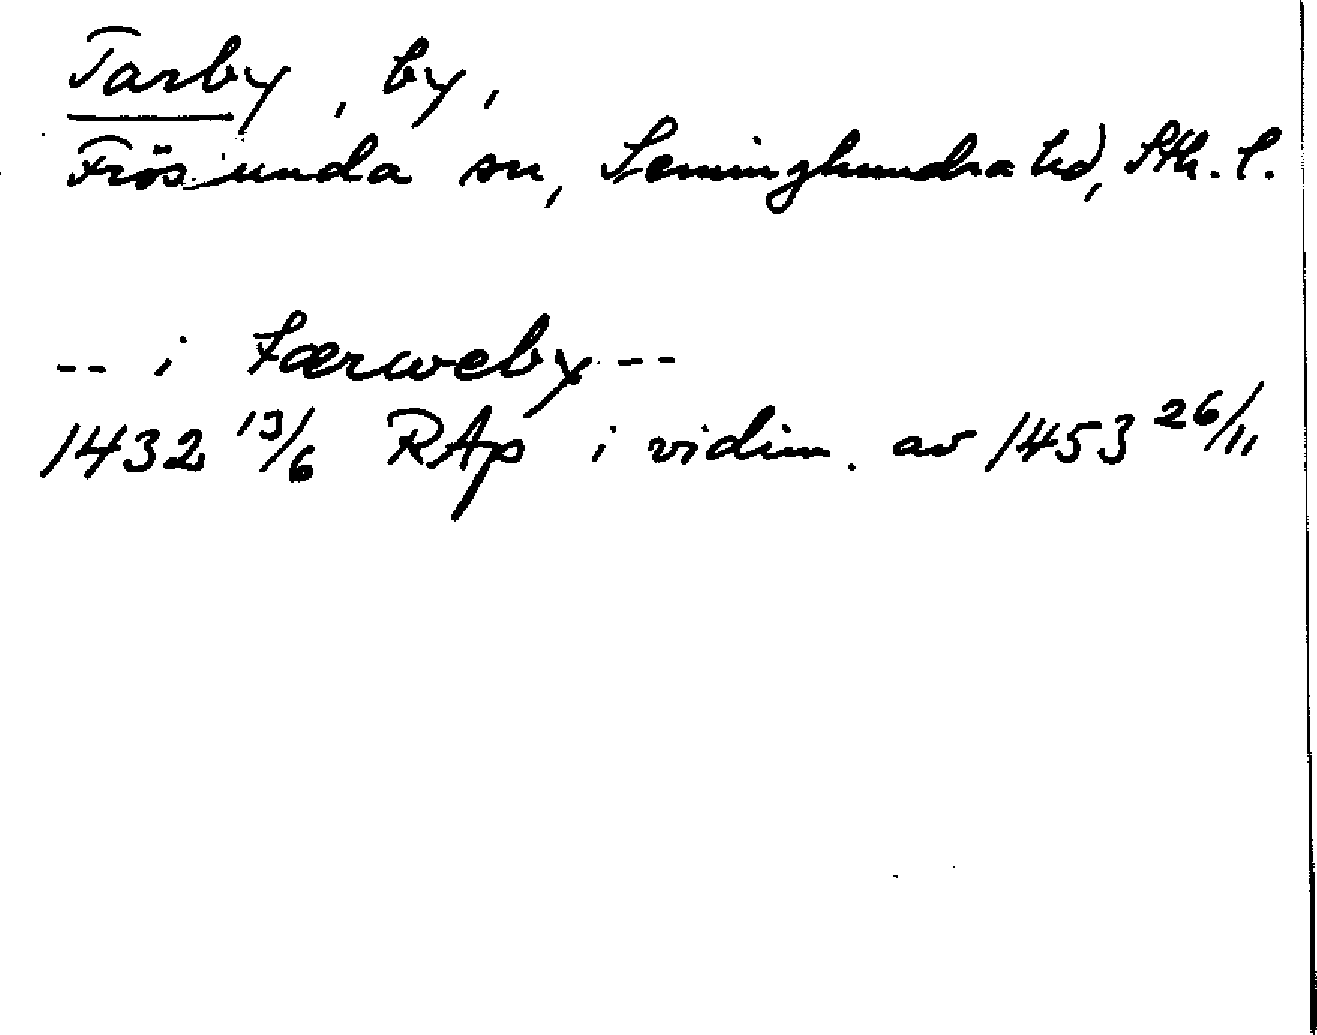 Tarby, by,
Frösunda sn, Seminghundra hd, Sth. l.
-- i Tærweby --
1432 13/6 RAp i vidim. av 1453 26/11